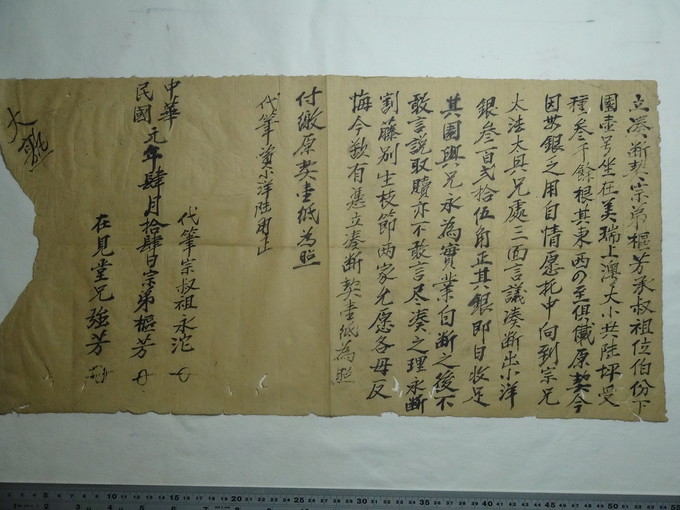 立湊断契宗弟樞芳承叔祖位伯份下
園壹号坐在美瑞上灣大小共陸坪受
種叁千餘根其東西の至俱儎原契今
因無銀之用自情愿托中向到宗兄
太法太興兄處三面言議湊断出小洋
銀叁百弍拾伍角正其銀即日收足
其園與兄永為實業自断之後不
敢言說取贖亦不敢言尽湊之理永断
割藤別生枝節兩家允愿各毋反
悔今欲有憑立湊断契壹紙為照
付繳原契壹紙為照
代筆 小洋陸角正
代筆宗叔祖永沱
中華
民國元年肆月拾肆日宗弟樞芳
在見堂兄強芳
大